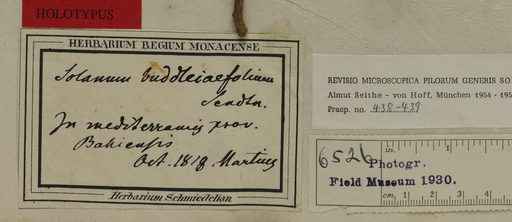 HOLOTYPUS
HERBARIUM REGIUM MONACENSE
Solanum buddleiaefolium
Sendtn.
In mediterraneis prov.
Bahiensis
Oct. 1818. Martius
Herbarium Schmiedelian
REVISIO MICROSCOPICA PILORUM GENERIS SO
Almut Seithe - von Hoff, München 1954 - 195
Praep. no. 438-439
6526
Photogr.
Field Museum 1930.
in. 1
cm. 1 2 3 4